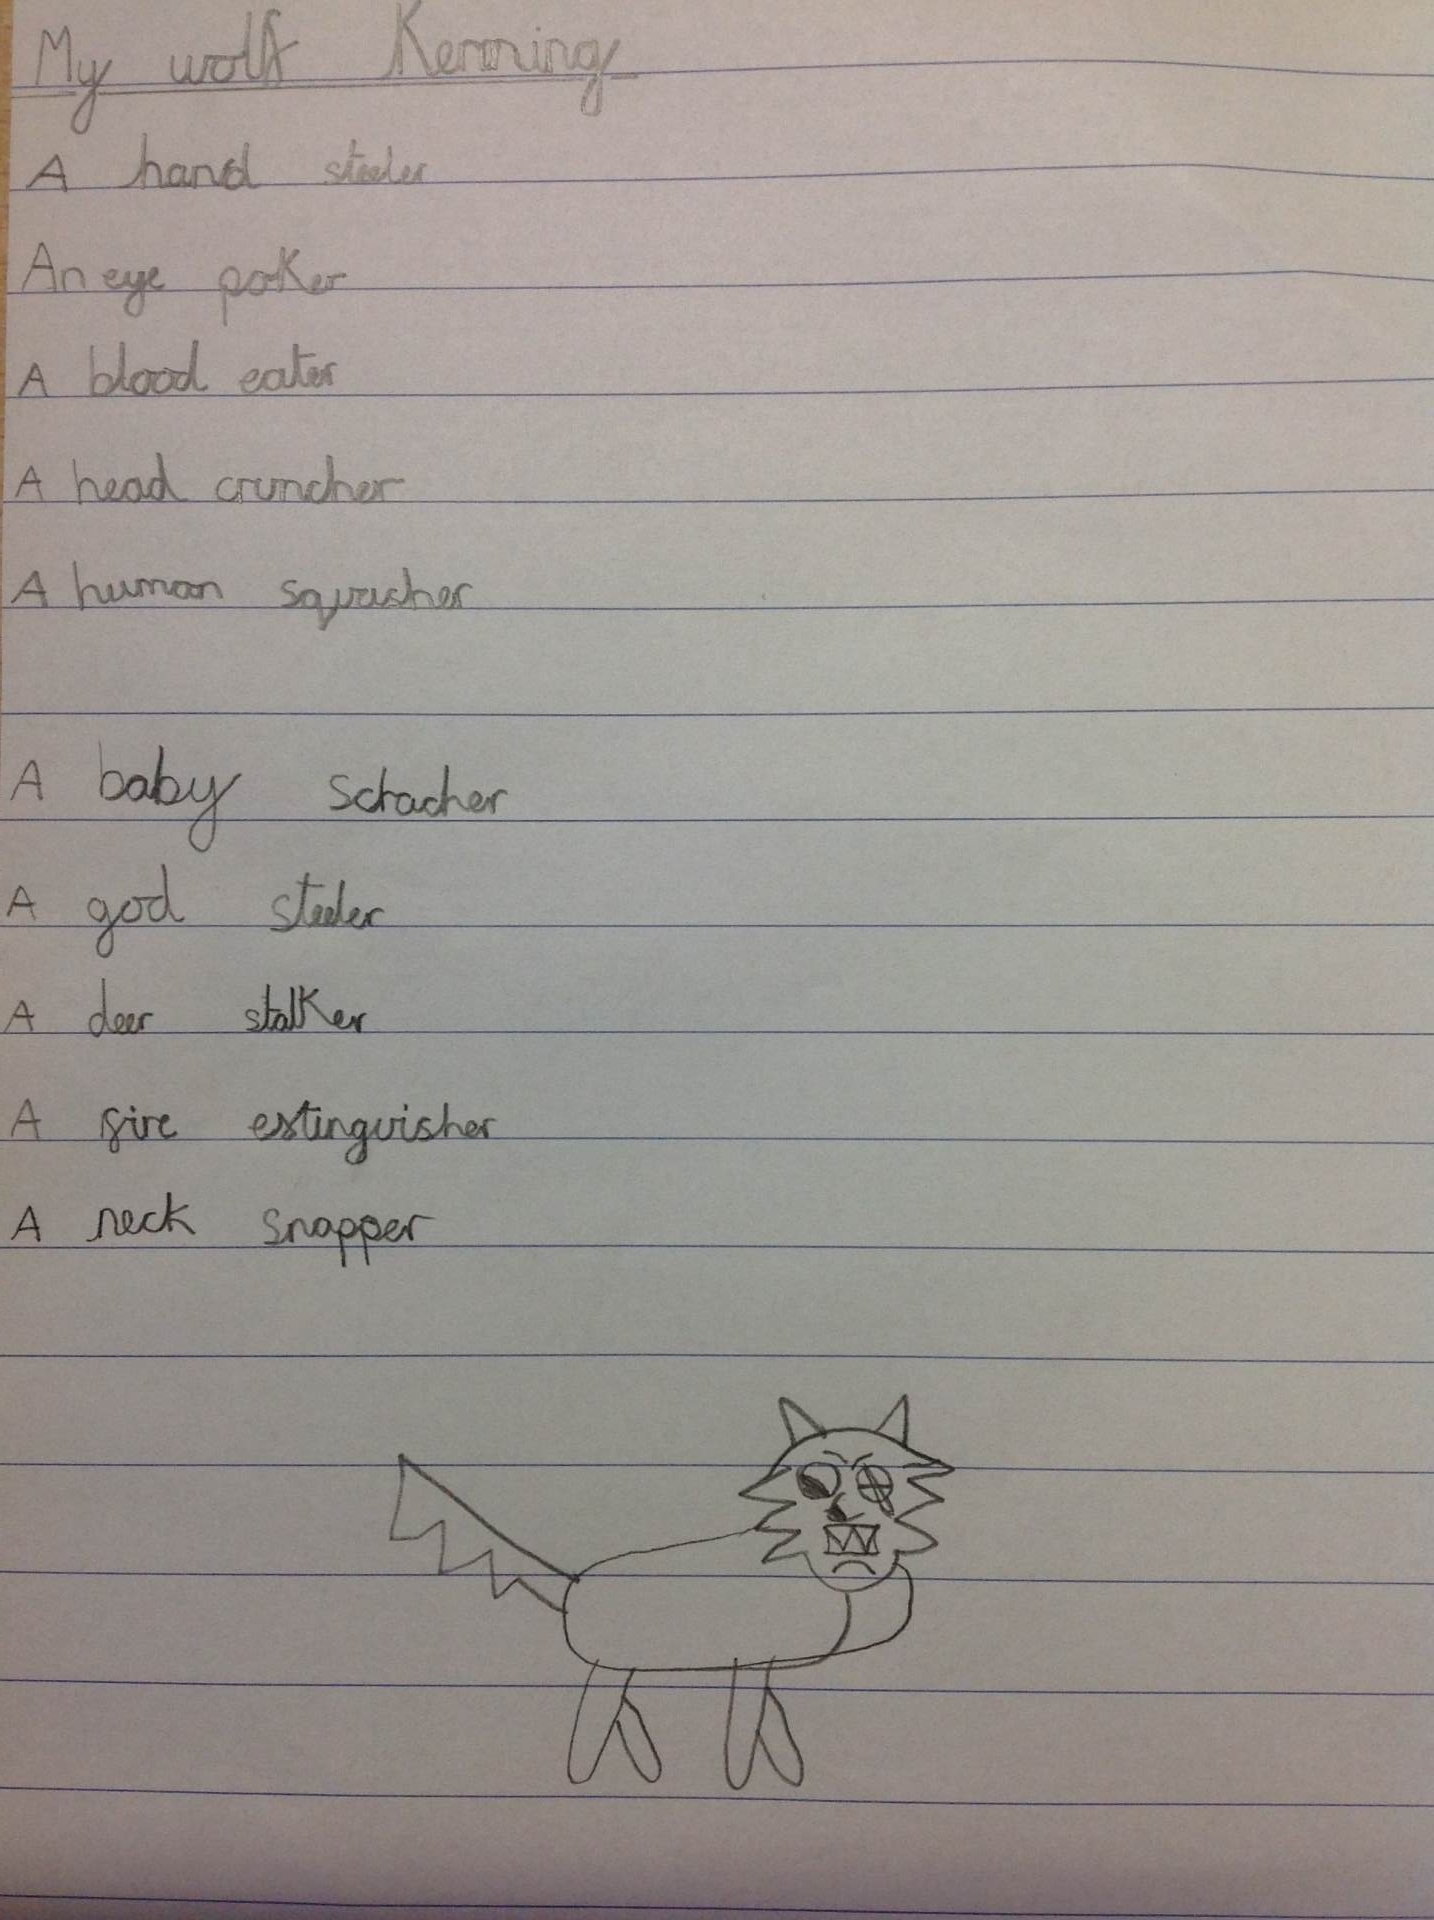 My wolf Kenning
A hand steeler
An eye poker
A blood eater
A head cruncher
A human squasher
A baby scracher
A god steeler
A deer stalker
A fire extinguisher
A neck snapper